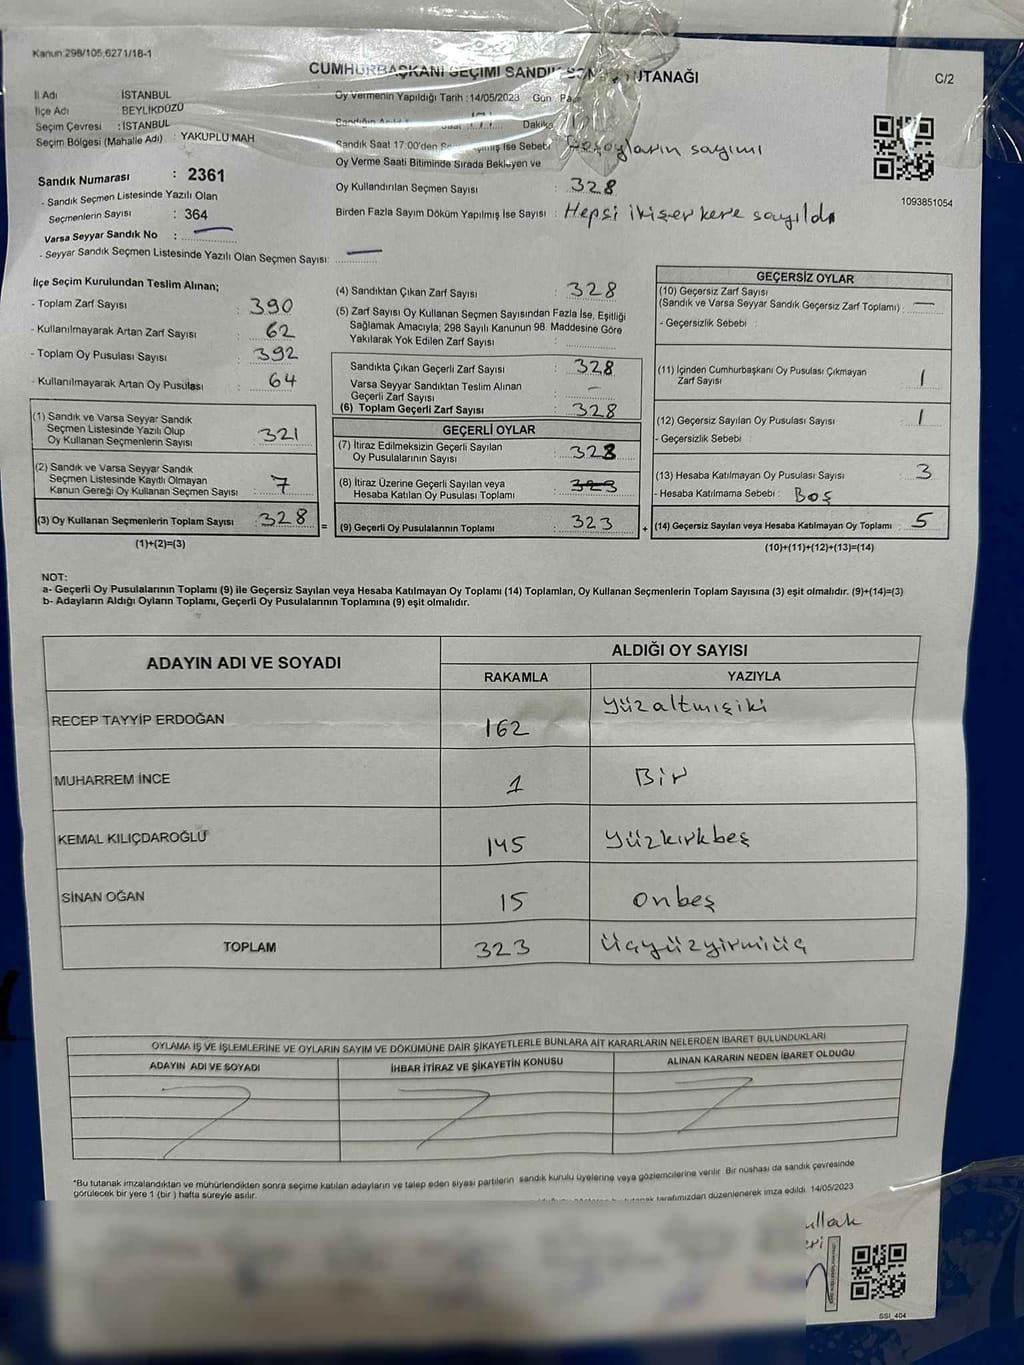 Kanun 298/105,6271/18-1
CUMHURBAŞKANI SEÇİMİ SANDIK SONUÇ TUTANAĞI
C/2
İl Adı : İSTANBUL
İlçe Adı : BEYLİKDÜZÜ
Seçim Çevresi : İSTANBUL
Seçim Bölgesi (Mahalle Adı) : YAKUPLU MAH
Sandık Numarası : 2361
- Sandık Seçmen Listesinde Yazılı Olan
Seçmenlerin Sayısı : 364
Varsa Seyyar Sandık No :
- Seyyar Sandık Seçmen Listesinde Yazılı Olan Seçmen Sayısı:
Oy Vermenin Yapıldığı Tarih :14/05/2023 Gün
Dakika
Sandık Saat 17:00'den İse Sebebi oyların sayımı
Oy Verme Saati Bitiminde Sırada Bekleyen ve
Oy Kullandırılan Seçmen Sayısı : 328
Birden Fazla Sayım Döküm Yapılmış İse Sayısı : Hepsi ikişer kere sayıldı
1093851054
İlçe Seçim Kurulundan Teslim Alınan;
- Toplam Zarf Sayısı : 390
- Kullanılmayarak Artan Zarf Sayısı : 62
- Toplam Oy Pusulası Sayısı : 392
- Kullanılmayarak Artan Oy Pusulası : 64
(1) Sandık ve Varsa Seyyar Sandık
Seçmen Listesinde Yazılı Olup
Oy Kullanan Seçmenlerin Sayısı : 321
(2) Sandık ve Varsa Seyyar Sandık
Seçmen Listesinde Kayıtlı Olmayan
Kanun Gereği Oy Kullanan Seçmen Sayısı : 7
(3) Oy Kullanan Seçmenlerin Toplam Sayısı : 328 =
(1)+(2)=(3)
(4) Sandıktan Çıkan Zarf Sayısı : 328
(5) Zarf Sayısı Oy Kullanan Seçmen Sayısından Fazla İse, Eşitliği
Sağlamak Amacıyla; 298 Sayılı Kanunun 98. Maddesine Göre
Yakılarak Yok Edilen Zarf Sayısı :
Sandıkta Çıkan Geçerli Zarf Sayısı : 328
Varsa Seyyar Sandıktan Teslim Alınan
Geçerli Zarf Sayısı : –
(6) Toplam Geçerli Zarf Sayısı : 328
GEÇERLİ OYLAR
(7) İtiraz Edilmeksizin Geçerli Sayılan
Oy Pusulalarının Sayısı : 323
(8) İtiraz Üzerine Geçerli Sayılan veya
Hesaba Katılan Oy Pusulası Toplamı : 323
(9) Geçerli Oy Pusulalarının Toplamı : 323 +
GEÇERSİZ OYLAR
(10) Geçersiz Zarf Sayısı
(Sandık ve Varsa Seyyar Sandık Geçersiz Zarf Toplamı) : —
- Geçersizlik Sebebi :
(11) İçinden Cumhurbaşkanı Oy Pusulası Çıkmayan
Zarf Sayısı : 1
(12) Geçersiz Sayılan Oy Pusulası Sayısı : 1
- Geçersizlik Sebebi :
(13) Hesaba Katılmayan Oy Pusulası Sayısı : 3
- Hesaba Katılmama Sebebi : Boş
(14) Geçersiz Sayılan veya Hesaba Katılmayan Oy Toplamı : 5
(10)+(11)+(12)+(13)=(14)
NOT:
a- Geçerli Oy Pusulalarının Toplamı (9) ile Geçersiz Sayılan veya Hesaba Katılmayan Oy Toplamı (14) Toplamları, Oy Kullanan Seçmenlerin Toplam Sayısına (3) eşit olmalıdır. (9)+(14)=(3)
b- Adayların Aldığı Oyların Toplamı, Geçerli Oy Pusulalarının Toplamına (9) eşit olmalıdır.
ADAYIN ADI VE SOYADI
ALDIĞI OY SAYISI
RAKAMLA YAZIYLA
RECEP TAYYİP ERDOĞAN 162 Yüzaltmışiki
MUHARREM İNCE 1 Bir
KEMAL KILIÇDAROĞLU 145 Yüzkırkbeş
SİNAN OĞAN 15 onbeş
TOPLAM 323 Üçyüzyirmiüç
OYLAMA İŞ VE İŞLEMLERİNE VE OYLARIN SAYIM VE DÖKÜMÜNE DAİR ŞİKAYETLERLE BUNLARA AİT KARARLARIN NELERDEN İBARET BULUNDUKLARI
ADAYIN ADI VE SOYADI İHBAR İTİRAZ VE ŞİKAYETİN KONUSU ALINAN KARARIN NEDEN İBARET OLDUĞU
*Bu tutanak imzalandıktan ve mühürlendikten sonra seçime katılan adayların ve talep eden siyasi partilerin sandık kurulu üyelerine veya gözlemcilerine verilir. Bir nüshası da sandık çevresinde
görülecek bir yere 1 (bir ) hafta süreyle asılır.
tutanak tarafımızdan düzenlenerek imza edildi. 14/05/2023
SSI_404